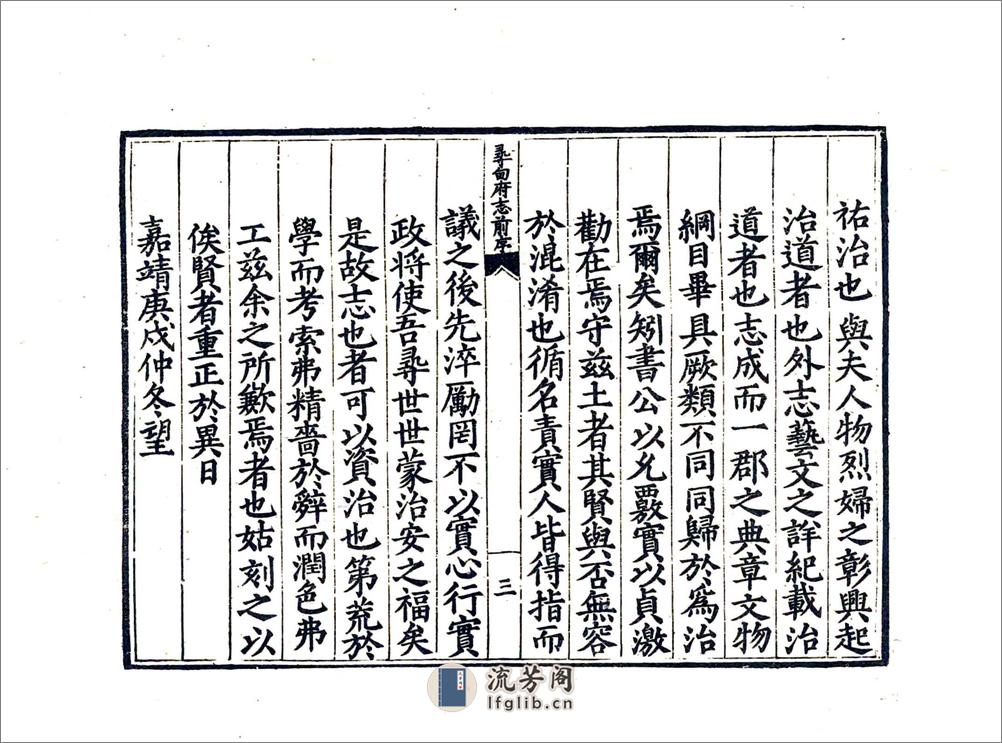 祐治也與夫人物烈婦之彰興起
治道者也外志藝文之詳紀載治
道者也志成而一郡之典章文物
綱目畢具厥類不同同歸於為治
焉爾矣矧書公以允覈實以貞激
勸在焉守茲土者其賢與否無容
於混淆也循名責實人皆得指而
尋甸府志前序
三
議之後先淬勵罔不以實心行實
政将使吾尋世世蒙治安之福矣
是故志也者可以資治也第荒於
學而考索弗精嗇於辭而潤色弗
工茲余之所歉焉者也姑刻之以
俟賢者重正於異日
嘉靖庚戌仲冬望
流芳阁
lfglib.cn